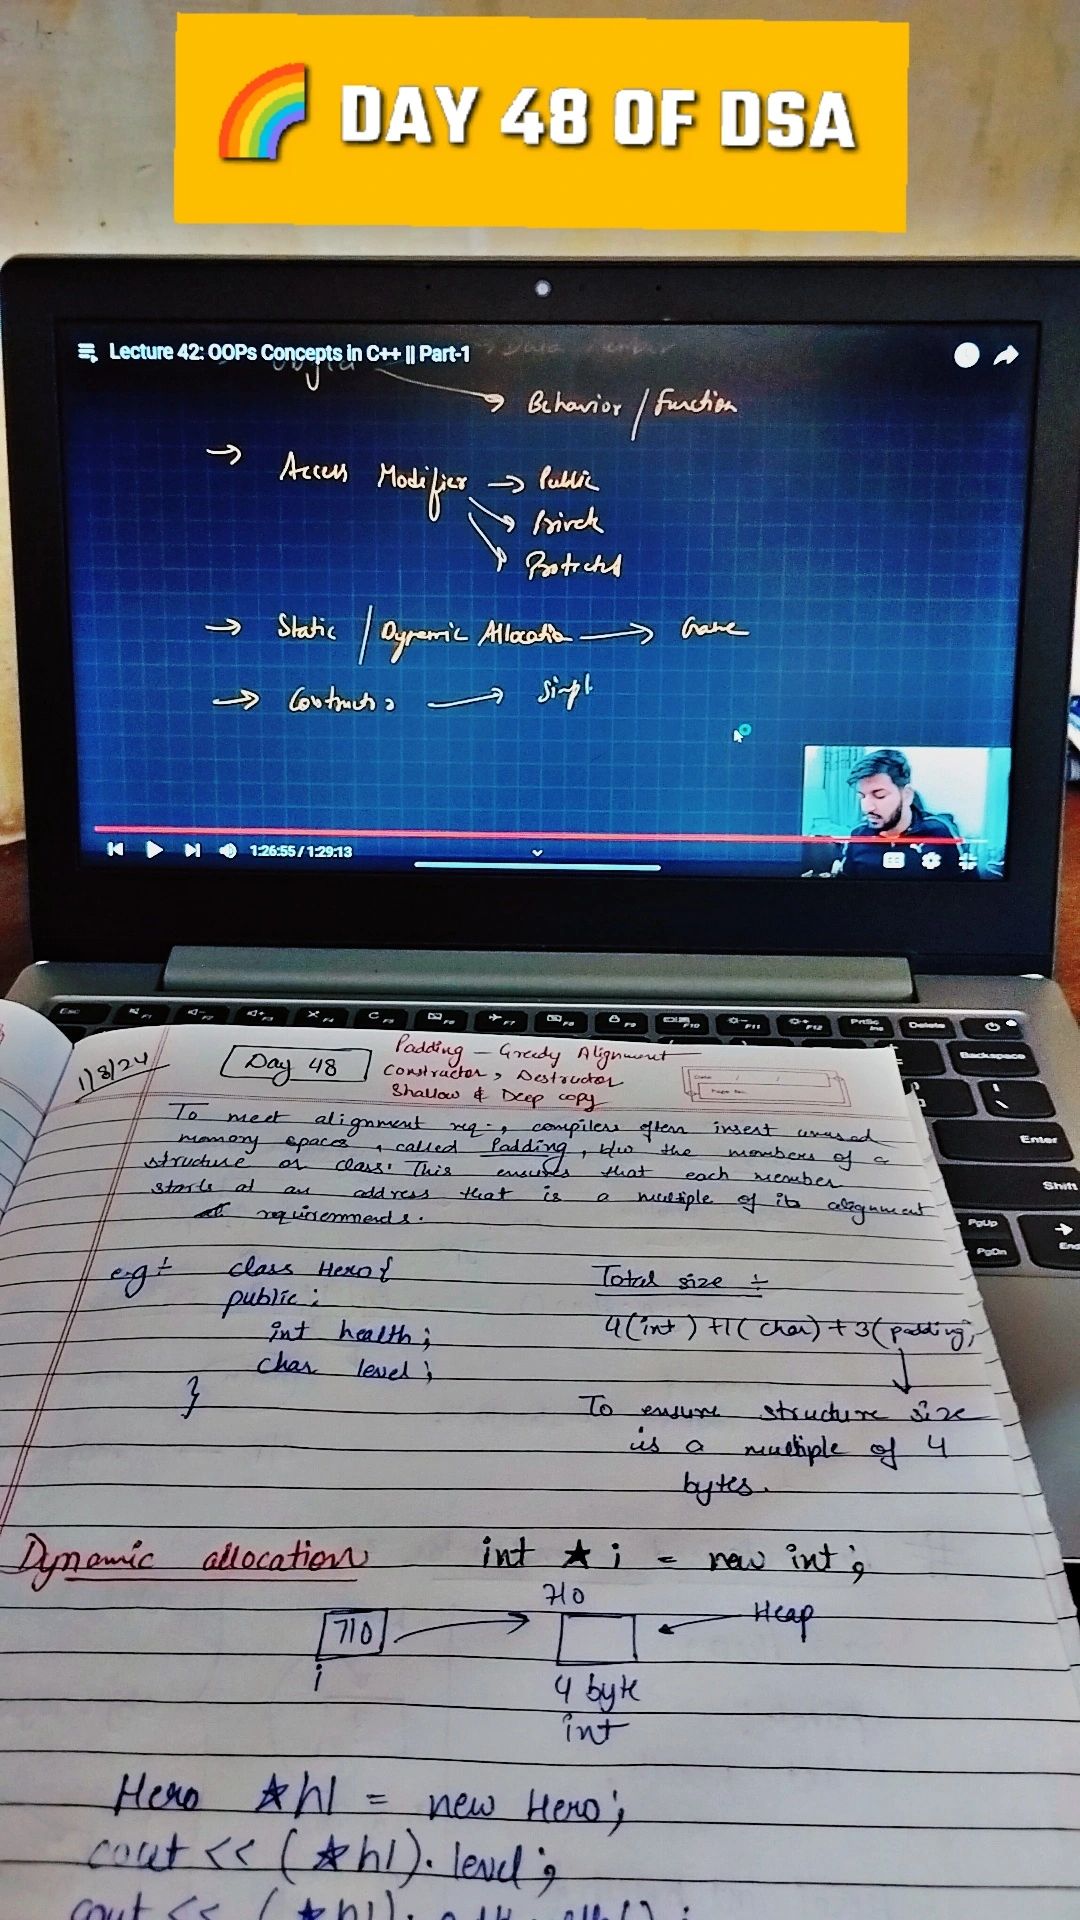 🌈 DAY 48 OF DSA
Lecture 42: OOPs Concepts in C++ || Part-1
Behavior / Function
→ Access Modifier → Public
→ Private
→ Protected
→ Static / Dynamic Allocation →
→ → Simpl
1:26:55 / 1:29:13
Esc F1 F2 F4 F5 F6 F7 F8 F9 F10 F11 F12 PrtSc Delete
Backspace
Enter
Shift
PgUp
PgDn
End
1/8/24
Day 48
Padding - Greedy Alignment
Constructor, Destructor
Shallow & Deep copy
To meet alignment req., compilers often insert unused
memory spaces, called Padding, b/w the members of a
structure or class. This ensures that each member
starts at an address that is a multiple of its alignment
requirements.
e.g ÷ class Hero{
public:
int health;
char level;
}
Total size ÷
4(int) +1(char) + 3(padding)
To ensure structure size
is a multiple of 4
bytes.
Dynamic allocation int *i = new int;
710
710
Heap
i
4 byte
int
Hero *h1 = new Hero;
cout << (*h1).level;
cout << (*h1).